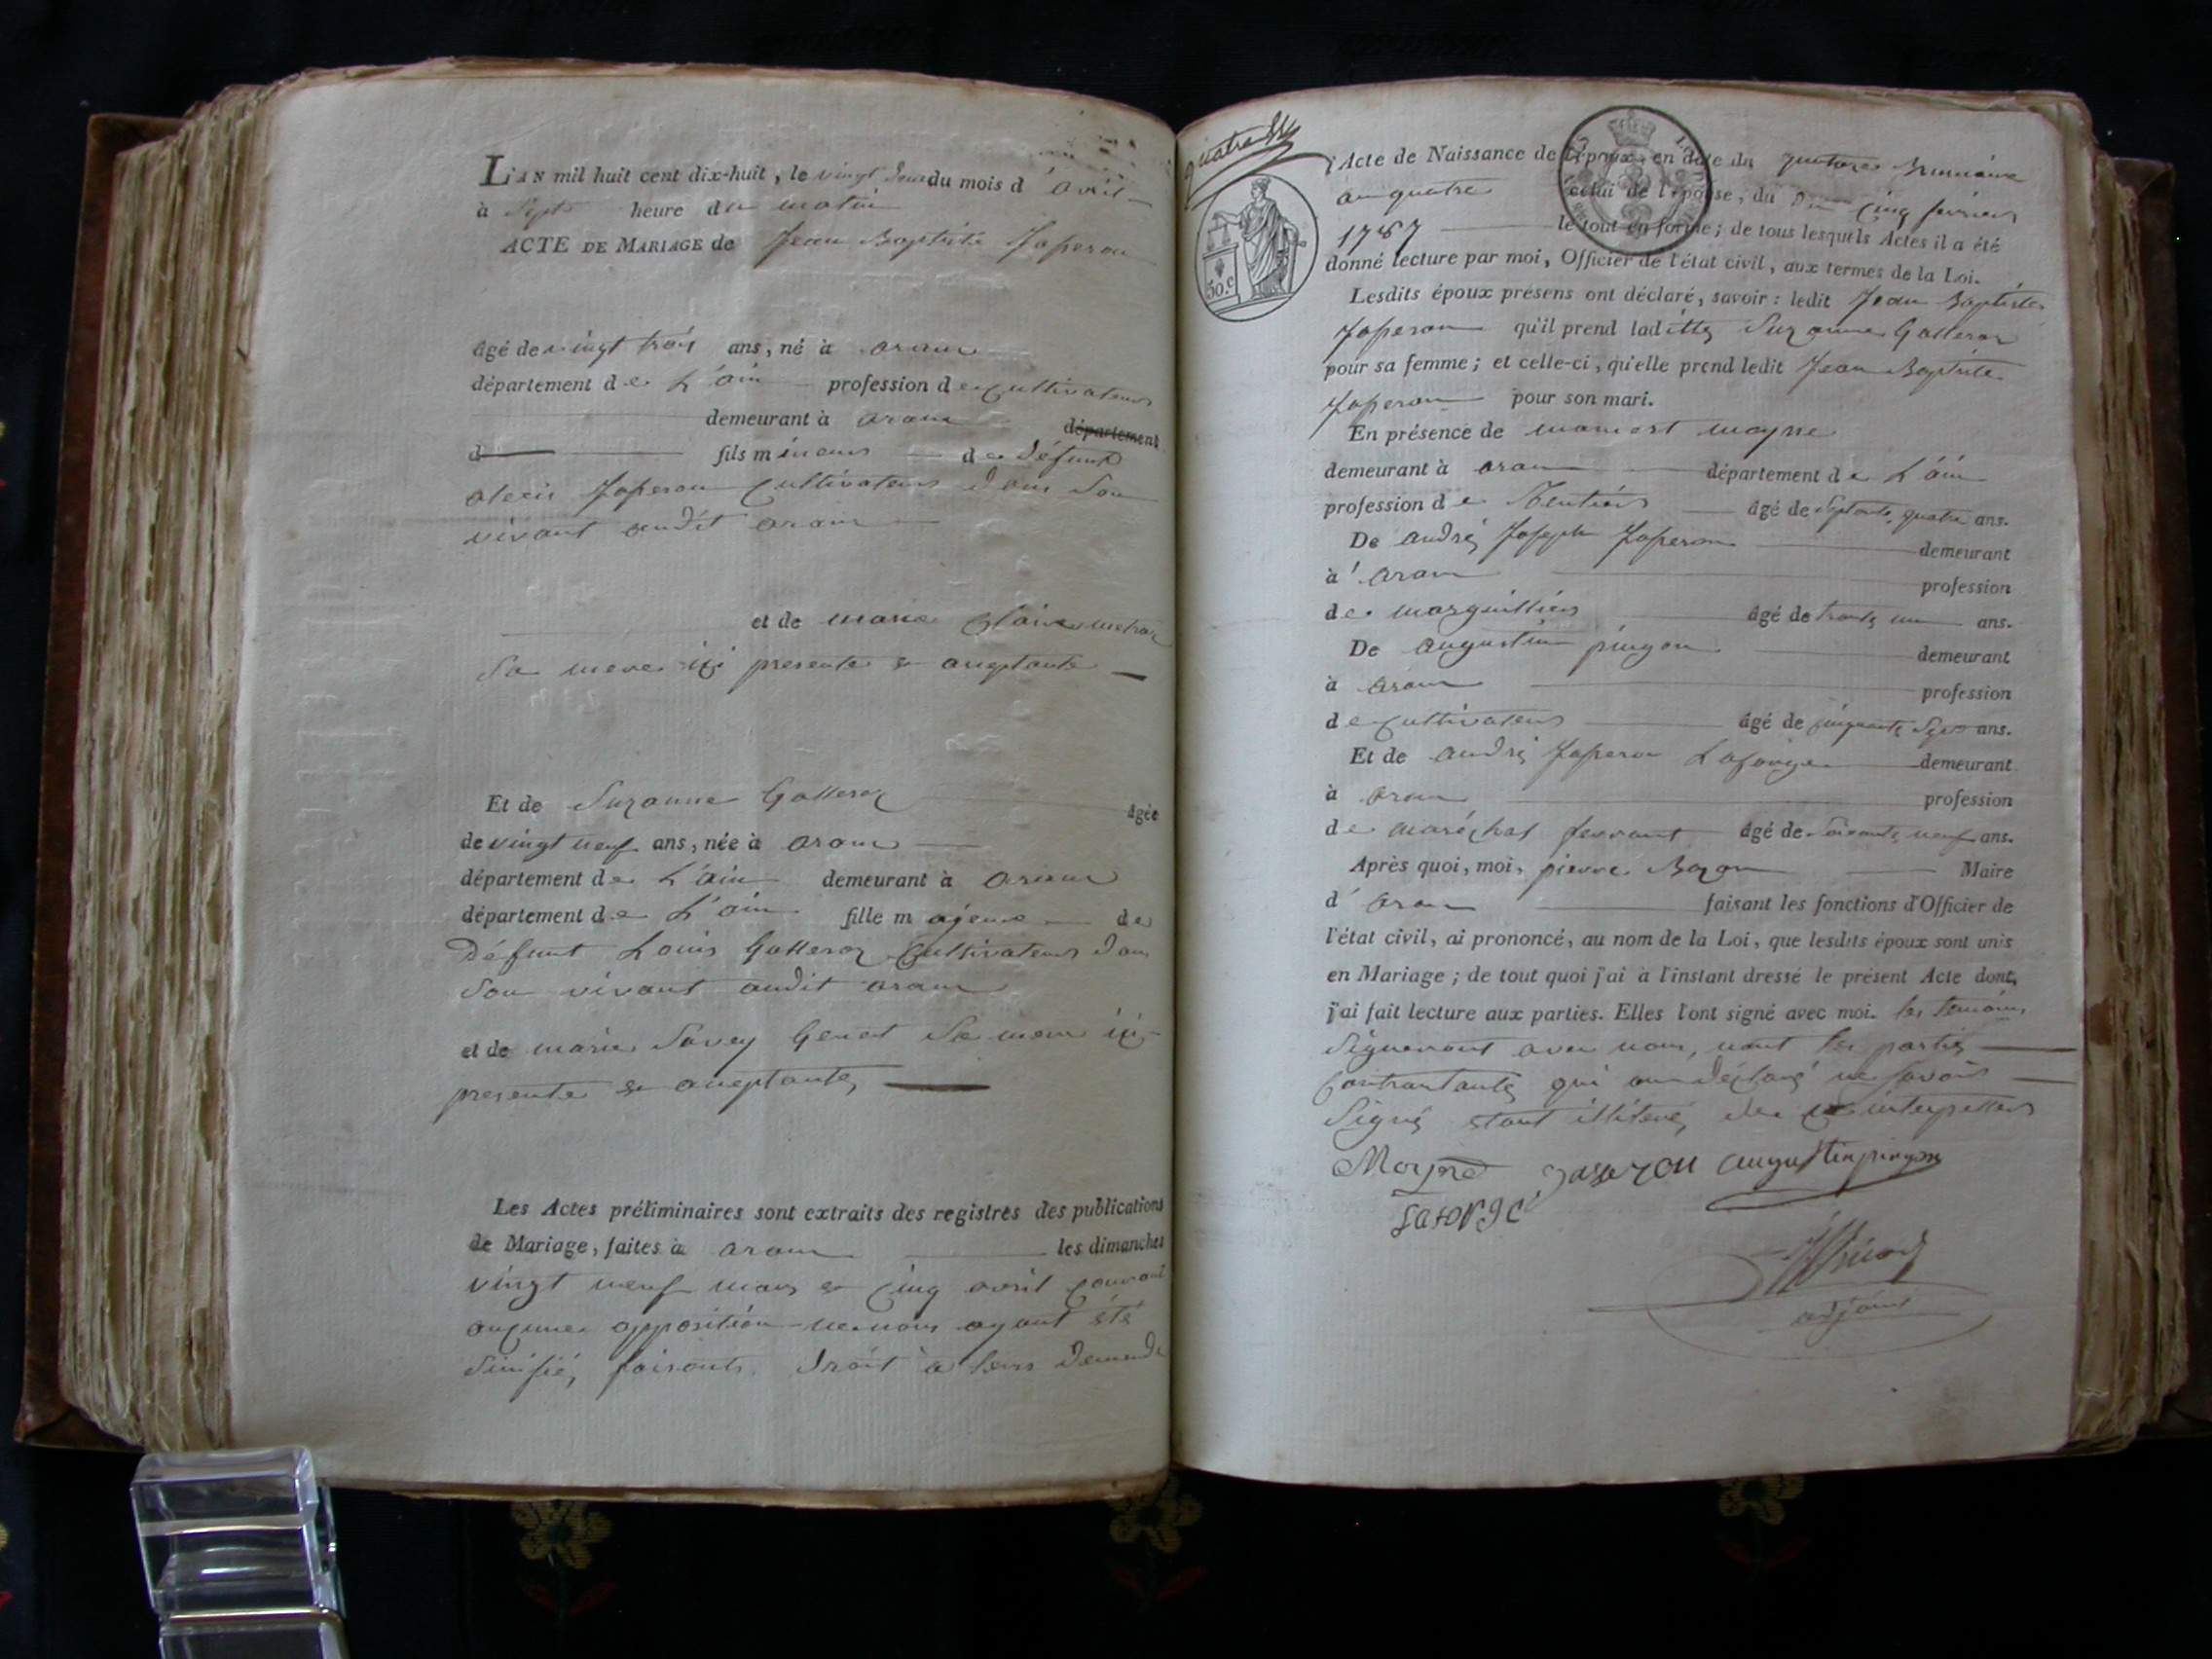 L'AN mil huit cent dix-huit, le vingt deux du mois d'avril
à Sept heure du matin
ACTE DE MARIAGE de Jean Baptiste Japerou
âgé de vingt trois ans, né à aranc
département de L'ain profession de cultivateur
demeurant à aranc département
d fils mineur de défunt
alexis Japerou cultivateur dans Son
vivant audit aranc
et de marie Claire
Sa mere ici presente & aceptante
Et de Suzanne Galleraz âgée
de vingt neuf ans, née à aranc
département de L'ain demeurant à aranc
département de L'ain fille majeure de
Défunt Louis Galleraz Cultivateur dans
Son vivant audit aranc
et de marie Savey Genet Sa mere ici
presente & aceptante,
Les Actes préliminaires sont extraits des registres des publications
de Mariage, faites à aranc les dimanches
vingt neuf mars & cinq avril courant
aucune opposition ne nous ayant été
Sinifié, faisants droit à leur demande
quatre
50.c
l'Acte de Naissance de l'époux, en date du quatorze Brumaire
an quatre celui de l'épouse, du cinq fevrier
1787 le tout en forme; de tous lesquels Actes il a été
donné lecture par moi, Officier de l'état civil, aux termes de la Loi.
Lesdits époux présens ont déclaré, savoir: ledit Jean Baptiste
Japerou qu'il prend laditte Suzanne Galleraz
pour sa femme; et celle-ci, qu'elle prend ledit Jean Baptiste
Japerou pour son mari.
En présence de mamert moyne
demeurant à aranc département de L'ain
profession de Rentier âgé de Septante quatre ans.
De andré Joseph Japerou demeurant
à aranc profession
de marguillier âgé de trente un ans.
De augustin pingon demeurant
à aranc profession
de cultivateur âgé de cinquante Sept ans.
Et de andré Japerou Laforge demeurant
à aranc profession
de maréchal ferrant âgé de soixante neuf ans.
Après quoi, moi, pierre Bozon Maire
d'aranc faisant les fonctions d'Officier de
l'état civil, ai prononcé, au nom de la Loi, que lesdits époux sont unis
en Mariage; de tout quoi j'ai à l'instant dressé le présent Acte dont
j'ai fait lecture aux parties. Elles l'ont signé avec moi. les temoins
Signeront avec nous, nont les parties
Contractants qui ont déclaré ne Savoir
Signé étant illiteré, de ce interpellés
Moyne augustin pingon
Laforge
adjoint